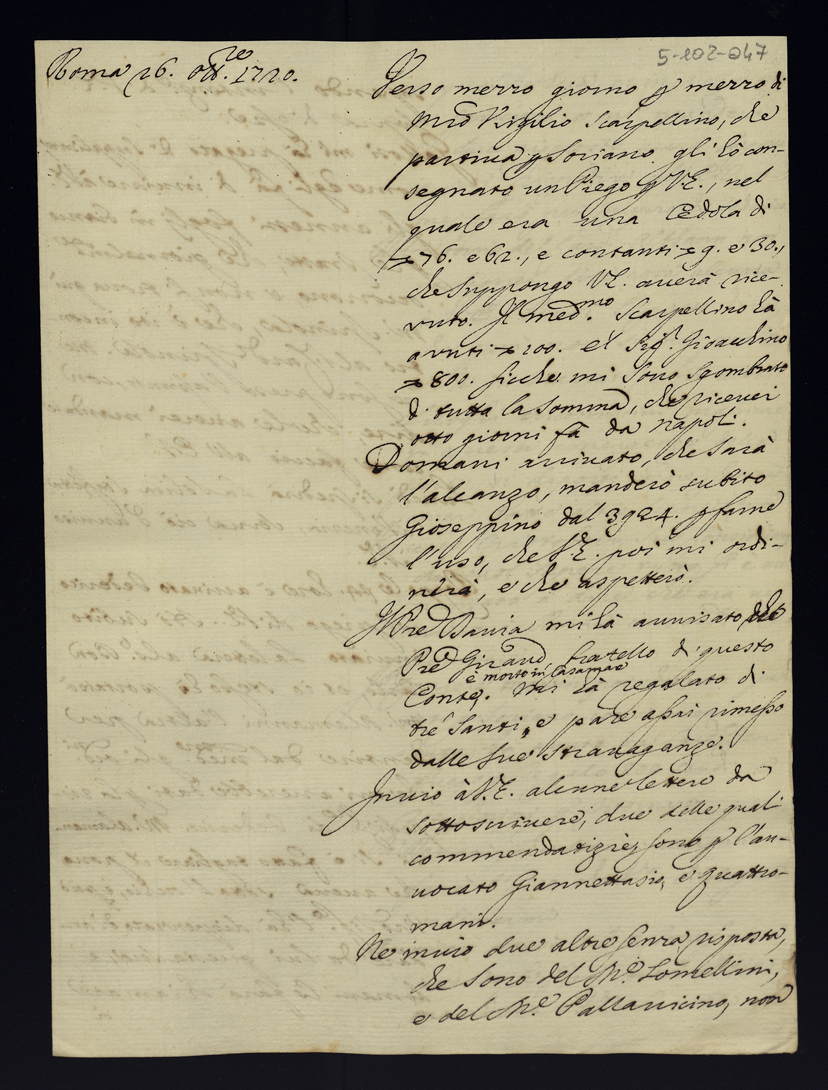 5-102-047
Roma 26. Ott.re 1720.
Verso mezzo giorno p mezzo di
Mro Virgilio Scarpellino, che
partiva p Soriano gli hò con-
segnato un Piego p V.E., nel
quale era una Cedola di
76. e 62., e contanti 9. e 30.,
che suppongo V.E. averà rice-
vuto. Il med.mo Scarpellino hà
avuti 200. e'l Sig.r Gioacchino
800. sicche mi sono sgombrato
di tutta la somma, che ricevei
otto giorni fà da Napoli.
Domani arrivato, che sarà
l'alcanzo, manderò subito
Gioseppino dal 3924. p farne
l'uso, che V.E. poi mi ordi-
nerà, e che aspetterò.
Il Pre Bavia mi hà avvisato che
Pre Giraud fratello di questo
è morto in Casamare
Conte. Mi hà regalato di
trè Santi, e pare assai rimesso
dalle sue stravaganze.
Invio à V.E. alcune lettere da
sottoscrivere, due delle quali
commendatizie sono p l'av-
vocato Giannettasio, e Quattro-
mani.
Ne invio due altre senza risposta,
che sono del M.e Lomellini,
e del M.e Pallavicino, non